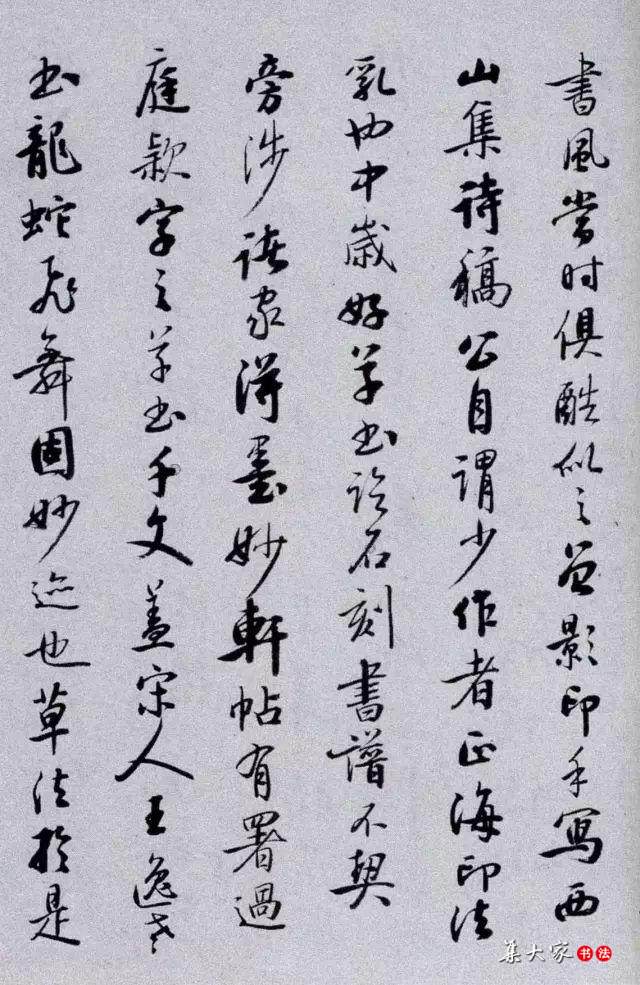 書風當时俱酷似之曾影印手寫西
山集诗稿公自谓少作者正海印法
乳也中歲好草书论石刻書譜不契
旁涉诸家得墨妙軒帖有署過
庭款字之草书千文盖宋人王逸老
书龍蛇飞舞固妙迹也草法於是
集大家书法